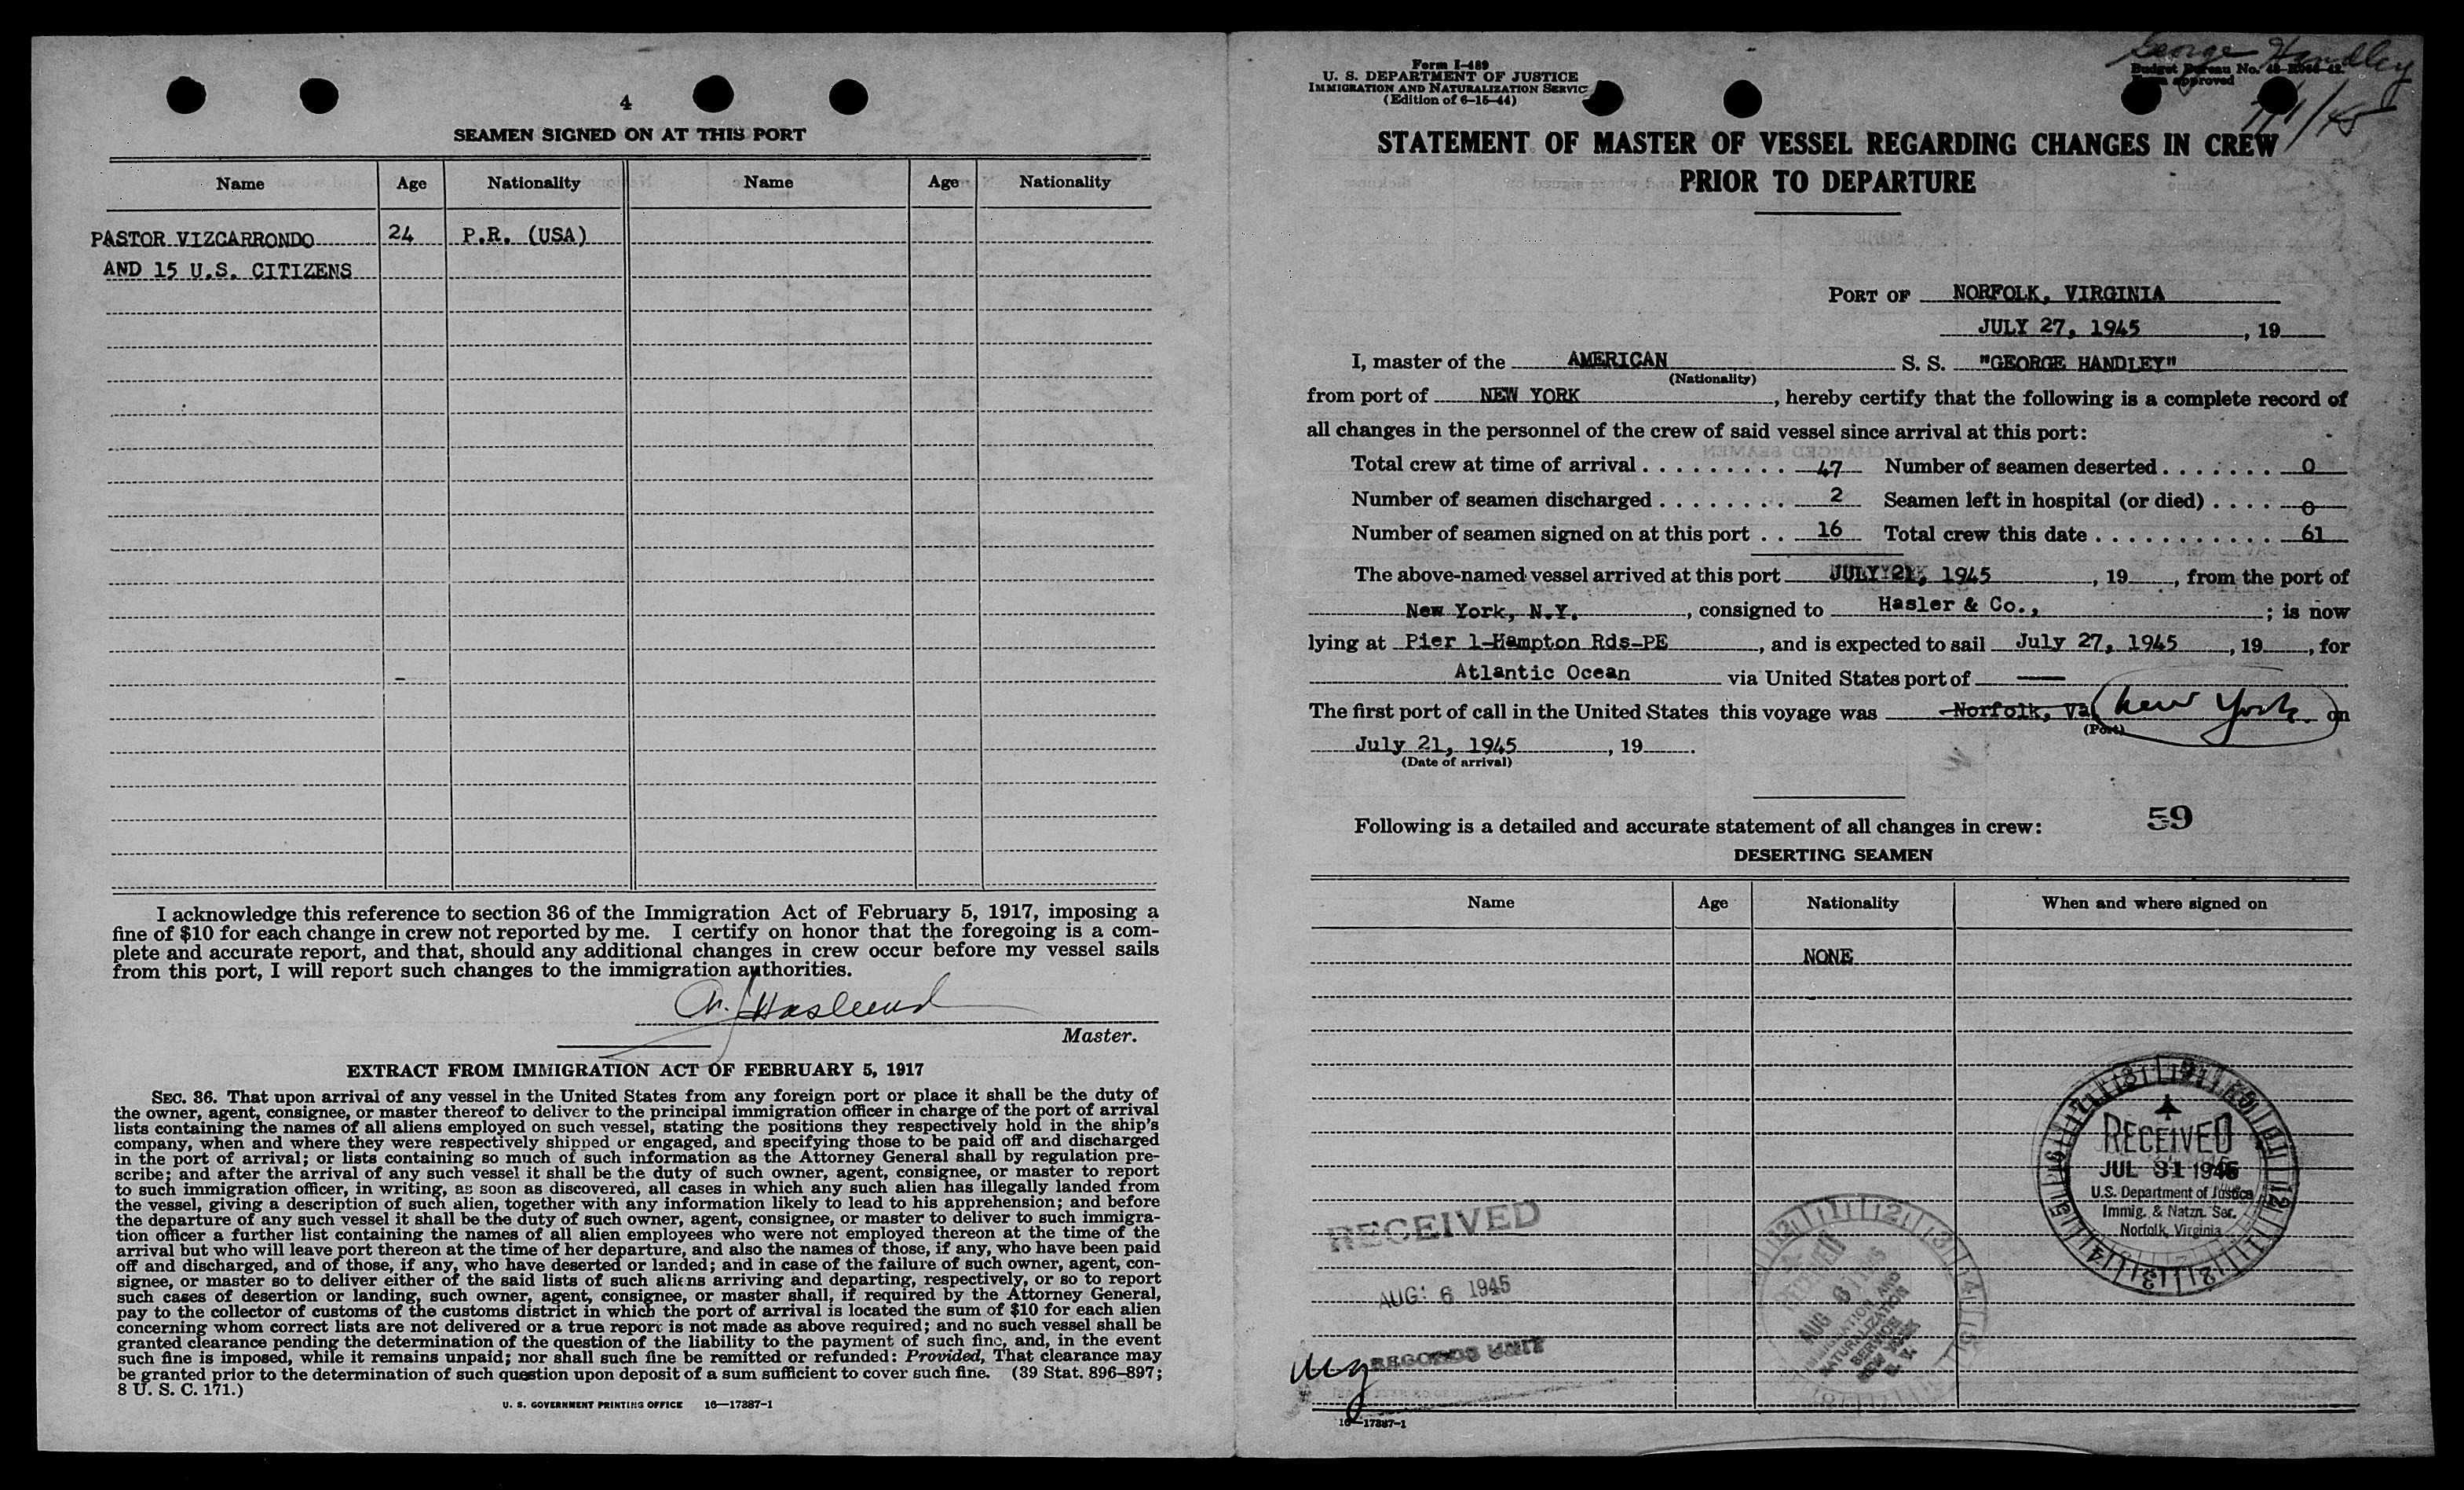 4
SEAMEN SIGNED ON AT THIS PORT
Name Age Nationality Name Age Nationality
PASTOR VIZCARRONDO 24 P.R. (USA)
AND 15 U.S. CITIZENS
I acknowledge this reference to section 36 of the Immigration Act of February 5, 1917, imposing a
fine of $10 for each change in crew not reported by me. I certify on honor that the foregoing is a com-
plete and accurate report, and that, should any additional changes in crew occur before my vessel sails
from this port, I will report such changes to the immigration authorities.
Master.
EXTRACT FROM IMMIGRATION ACT OF FEBRUARY 5, 1917
SEC. 36. That upon arrival of any vessel in the United States from any foreign port or place it shall be the duty of
the owner, agent, consignee, or master thereof to deliver to the principal immigration officer in charge of the port of arrival
lists containing the names of all aliens employed on such vessel, stating the positions they respectively hold in the ship's
company, when and where they were respectively shipped or engaged, and specifying those to be paid off and discharged
in the port of arrival; or lists containing so much of such information as the Attorney General shall by regulation pre-
scribe; and after the arrival of any such vessel it shall be the duty of such owner, agent, consignee, or master to report
to such immigration officer, in writing, as soon as discovered, all cases in which any such alien has illegally landed from
the vessel, giving a description of such alien, together with any information likely to lead to his apprehension; and before
the departure of any such vessel it shall be the duty of such owner, agent, consignee, or master to deliver to such immigra-
tion officer a further list containing the names of all alien employees who were not employed thereon at the time of the
arrival but who will leave port thereon at the time of her departure, and also the names of those, if any, who have been paid
off and discharged, and of those, if any, who have deserted or landed; and in case of the failure of such owner, agent, con-
signee, or master so to deliver either of the said lists of such aliens arriving and departing, respectively, or so to report
such cases of desertion or landing, such owner, agent, consignee, or master shall, if required by the Attorney General,
pay to the collector of customs of the customs district in which the port of arrival is located the sum of $10 for each alien
concerning whom correct lists are not delivered or a true report is not made as above required; and no such vessel shall be
granted clearance pending the determination of the question of the liability to the payment of such fine, and, in the event
such fine is imposed, while it remains unpaid; nor shall such fine be remitted or refunded: Provided, That clearance may
be granted prior to the determination of such question upon deposit of a sum sufficient to cover such fine. (39 Stat. 896-897;
8 U. S. C. 171.)
U. S. GOVERNMENT PRINTING OFFICE 16—17387-1
Form I-489
U. S. DEPARTMENT OF JUSTICE
IMMIGRATION AND NATURALIZATION SERVIC
(Edition of 6-15-44)
George Handley
Budget Bureau No.
approved
STATEMENT OF MASTER OF VESSEL REGARDING CHANGES IN CREW
PRIOR TO DEPARTURE
PORT OF NORFOLK, VIRGINIA
JULY 27, 1945, 19
I, master of the AMERICAN S. S. "GEORGE HANDLEY"
(Nationality)
from port of NEW YORK, hereby certify that the following is a complete record of
all changes in the personnel of the crew of said vessel since arrival at this port:
Total crew at time of arrival 47 Number of seamen deserted 0
Number of seamen discharged 2 Seamen left in hospital (or died) 0
Number of seamen signed on at this port 16 Total crew this date 61
The above-named vessel arrived at this port JULY 21, 1945, 19, from the port of
New York, N.Y., consigned to Hasler & Co., ; is now
lying at Pier 1-Hampton Rds-PE, and is expected to sail July 27, 1945, 19, for
Atlantic Ocean via United States port of —
The first port of call in the United States this voyage was Norfolk, Va. New York on
(Port)
July 21, 1945, 19.
(Date of arrival)
59
Following is a detailed and accurate statement of all changes in crew:
DESERTING SEAMEN
Name Age Nationality When and where signed on
NONE
RECEIVED
JUL 31 1945
U.S. Department of Justice
Immig. & Natzn. Ser.
Norfolk, Virginia
RECEIVED
AUG 6 1945
RECORDS UNIT
RECEIVED
AUG 6 1945
IMMIGRATION AND
NATURALIZATION
SERVICE
NEW YORK
N. Y.
16—17387-1